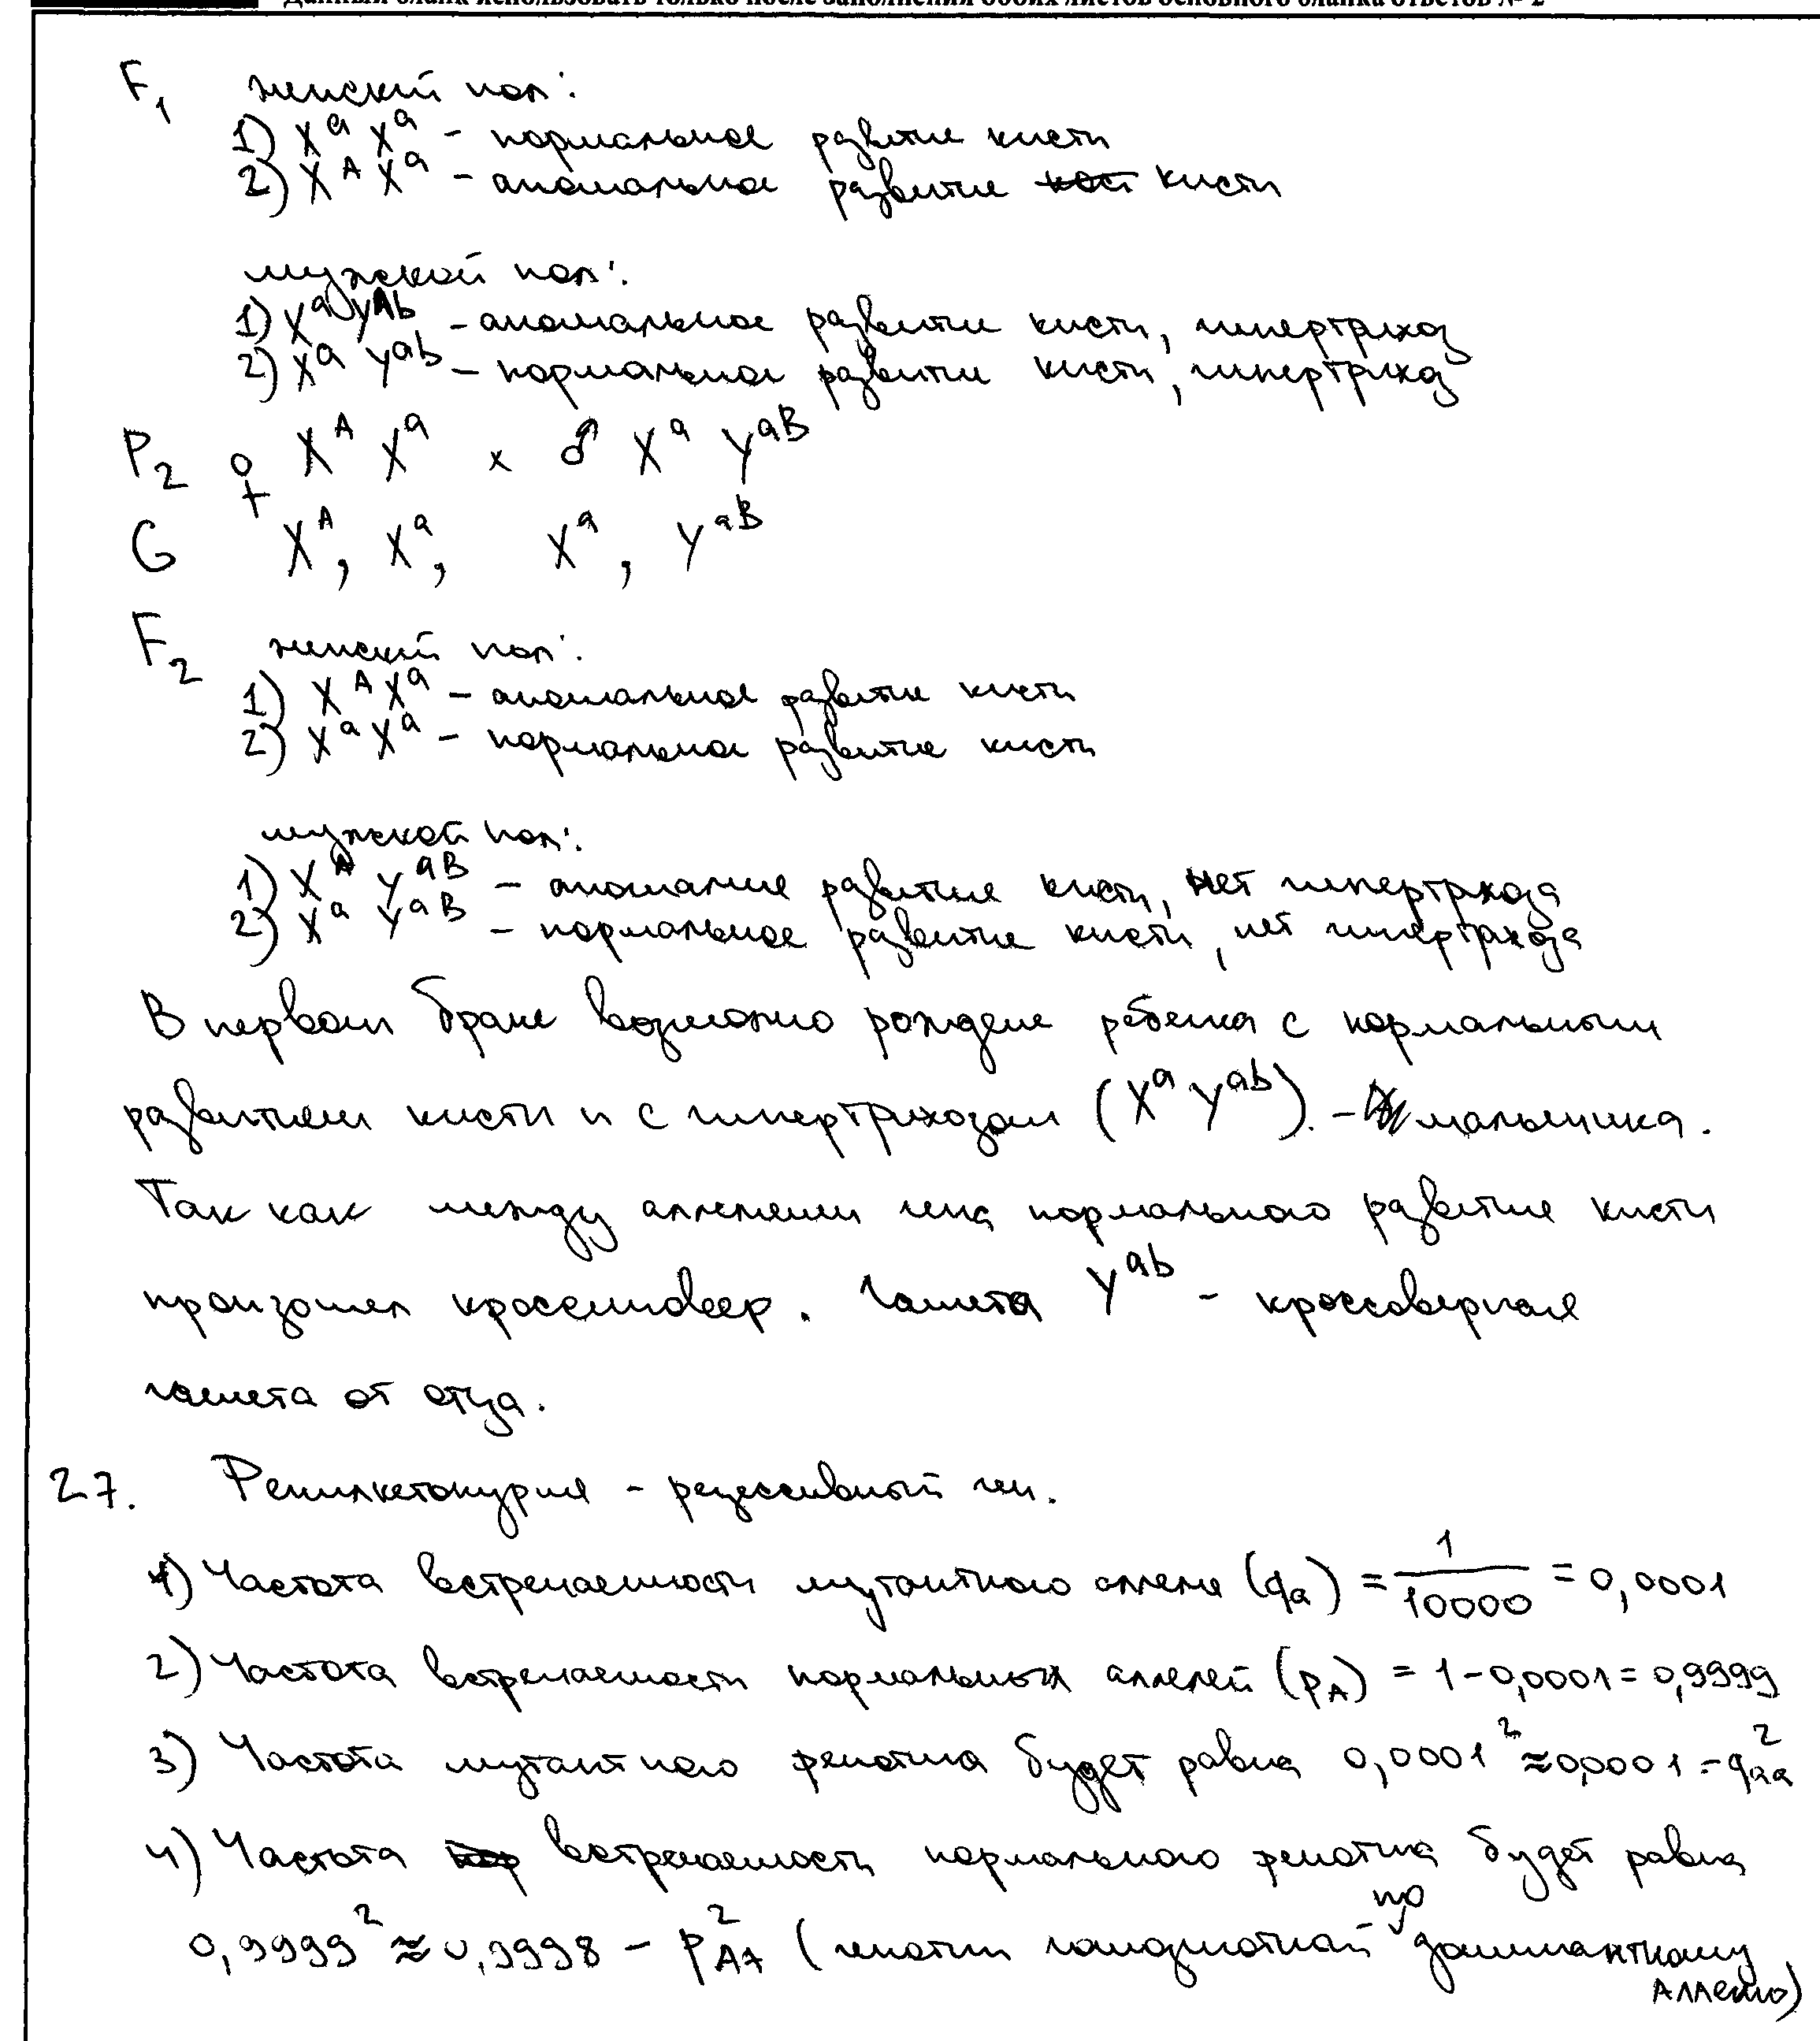 Данный бланк использовать только после заполнения обоих листов основного бланка ответов № 2
F₁ женский пол:
1) Xᵃ Xᵃ - нормальное развитие кисти
2) Xᴬ Xᵃ - аномальное развитие кист кисти
мужской пол:
1) Xᵃ Yᴬᵇ - аномальное развитие кисти, гипертрихоз
2) Xᵃ Yᵃᵇ - нормальное развитие кисти, гипертрихоз
P₂ ♀ Xᴬ Xᵃ x ♂ Xᵃ Yᵃᴮ
G Xᴬ, Xᵃ, Xᵃ, Yᵃᴮ
F₂ женский пол:
1) Xᴬ Xᵃ - аномальное развитие кисти
2) Xᵃ Xᵃ - нормальное развитие кисти
мужской пол:
1) Xᴬ Yᵃᴮ - аномалие развитие кисти, нет гипертрихоза
2) Xᵃ Yᵃᴮ - нормальное развитие кисти, нет гипертрихоза
В первом браке возможно рождение ребенка с нормальным
развитием кисти и с гипертрихозом (Xᵃ Yᵃᵇ). - мальчика.
Так как между аллелями гена нормального развитие кисти
произошел кроссинговер. Гамета Yᵃᵇ - кроссоверная
гамета от отца.
27. Фенилкетонурия - рецессивный ген.
1) Частота встречаемости мутантного аллеля (qₐ) = 1/10000 = 0,0001
2) Частота встречаемости нормальных аллелей (p_A) = 1 - 0,0001 = 0,9999
3) Частота мутантного фенотипа будет равна 0,0001² ≈ 0,0001 - q²ₐₐ
4) Частота встречаемости нормального фенотипа будет равна
0,9999² ≈ 0,9998 - p²_AA (генотип гомозиготной по доминантному
аллелю)